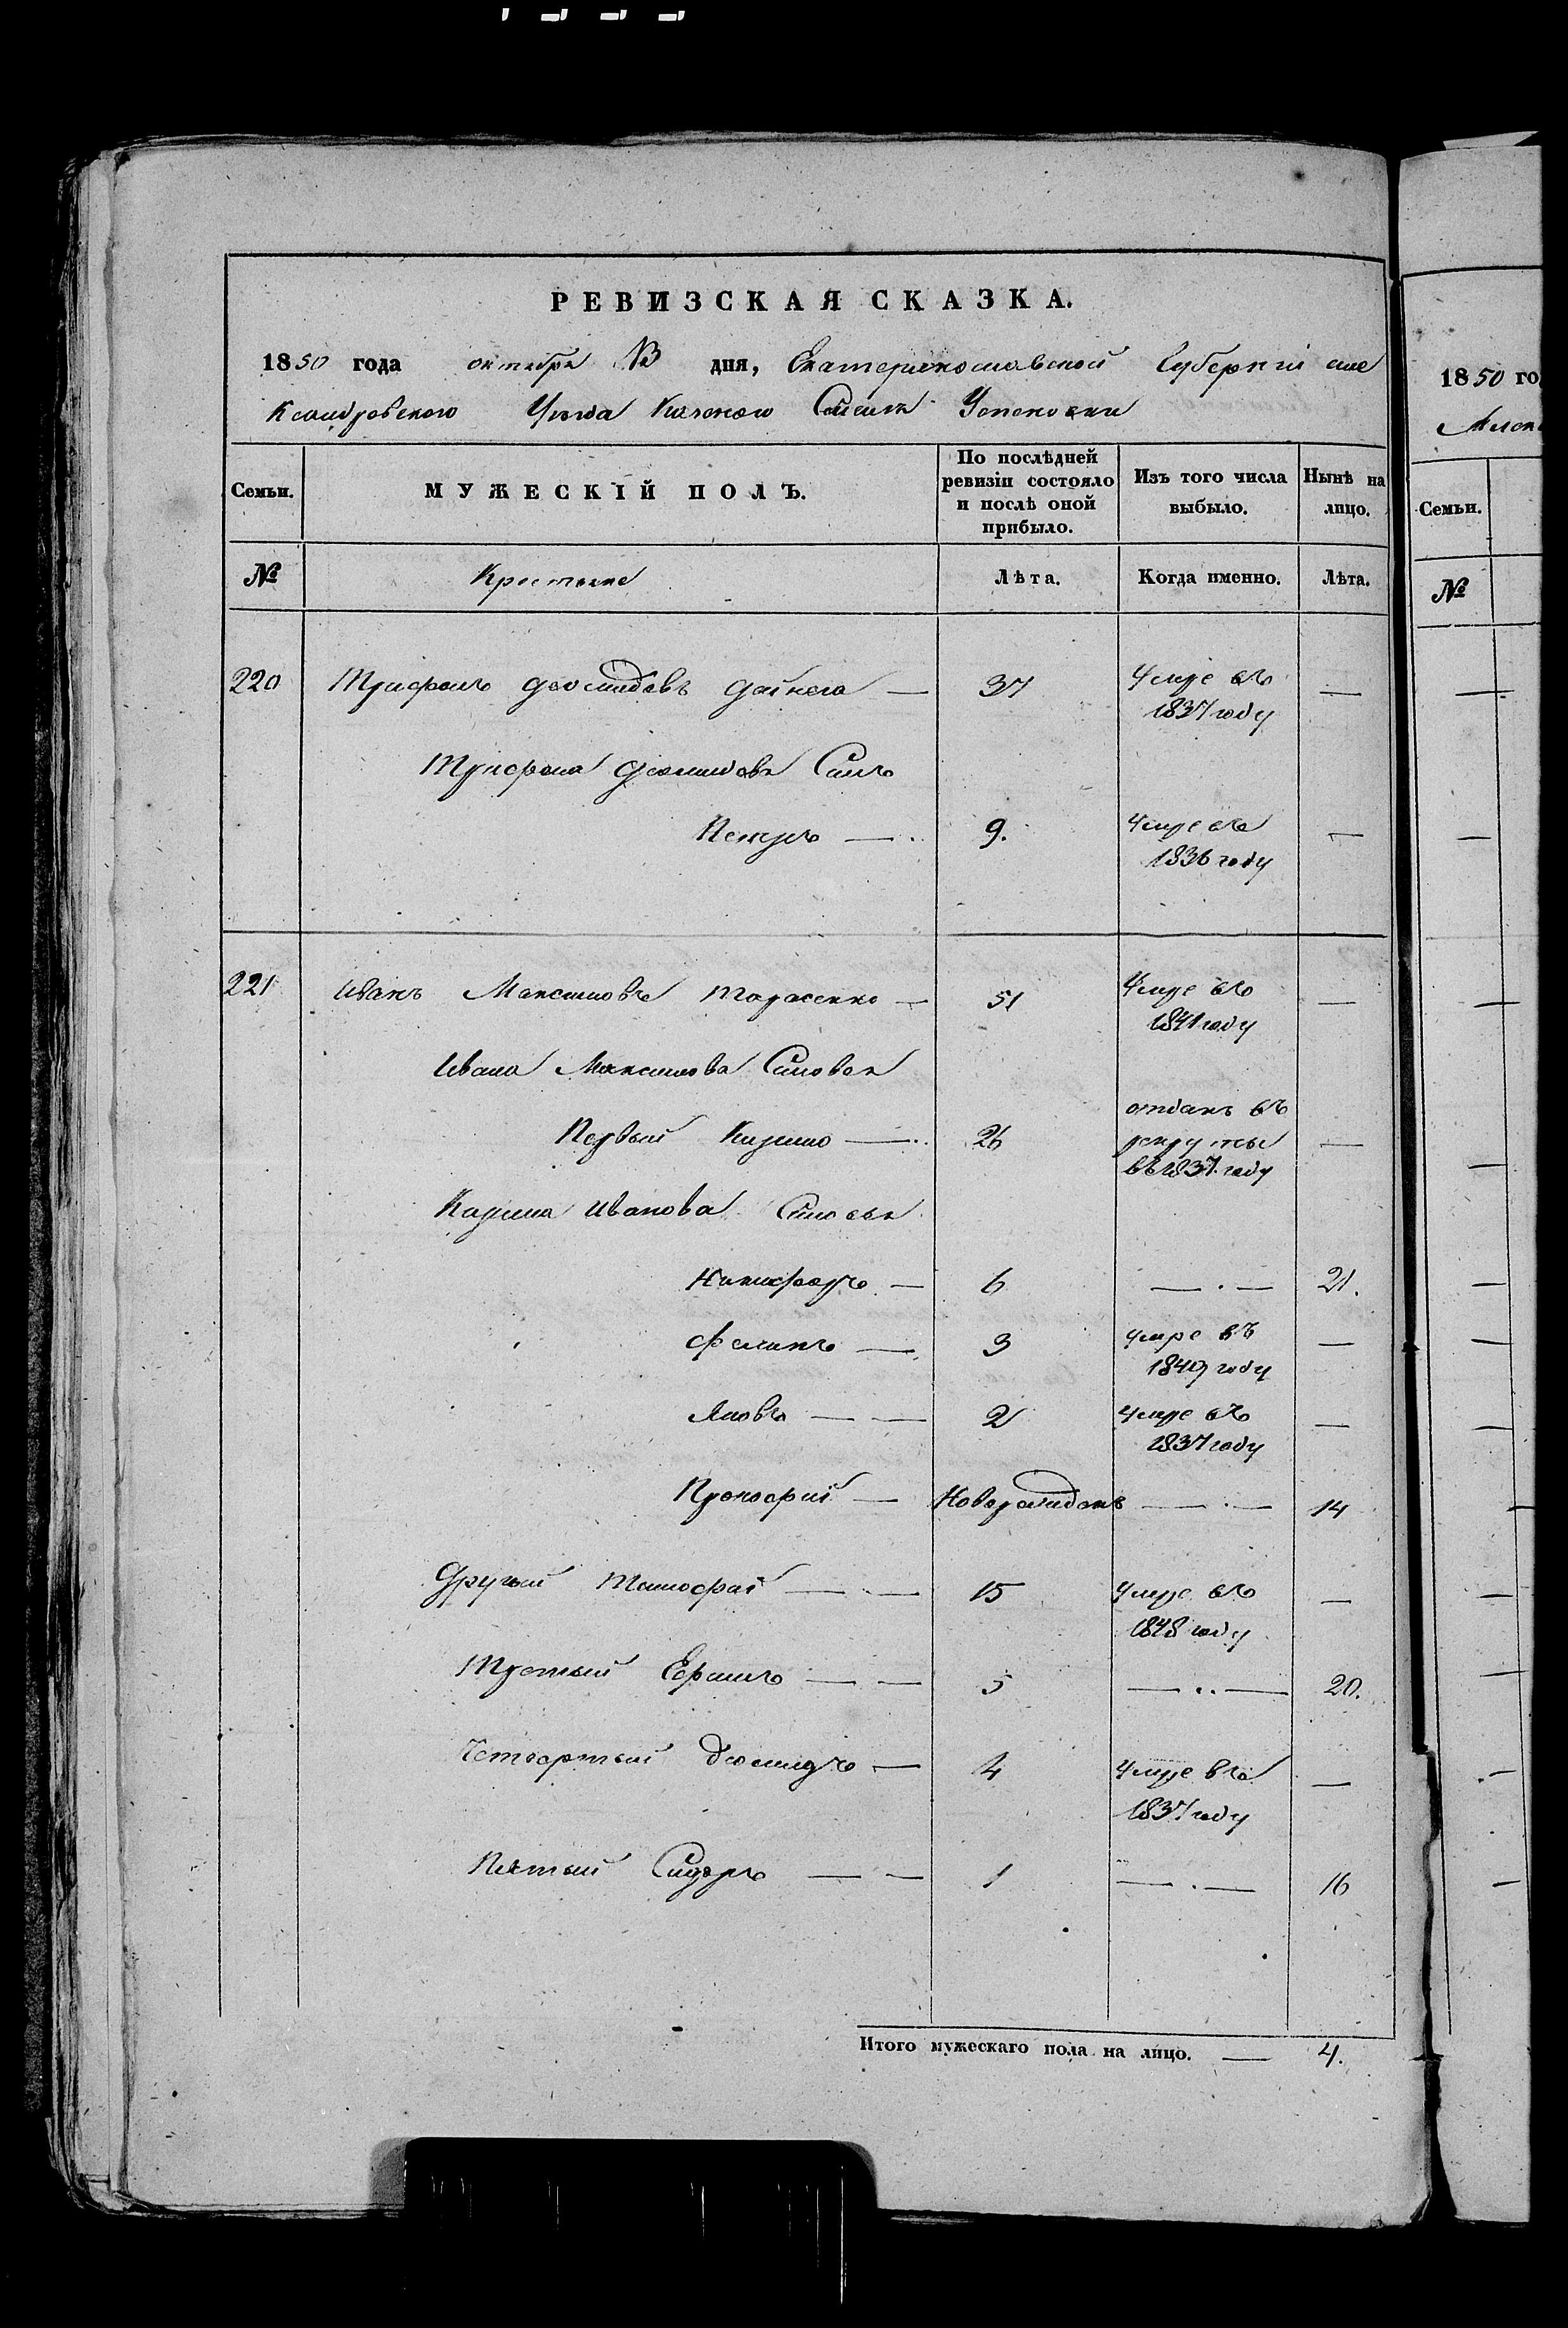 РЕВИЗСКАЯ СКАЗКА.
1850 года октября 13 дня, Екатеринославской Губерніи але
ксандровскаго Уѣзда Казенное Селенія Успеновки
Семьи. МУЖЕСКІЙ ПОЛЪ. По послѣдней ревизіи состояло и послѣ оной прибыло. Изъ того числа выбыло. Нынѣ на лицо.
№ Крестьяне Лѣта. Когда именно. Лѣта.
220 Трифонъ Деомидовъ — 37 Умре въ —
1837 году
Трифона Деомидова Сынъ
Петръ — 9. Умре въ —
1836 году
221 Иванъ Максимовъ Тарасенко — 51 Умре въ —
1841 году
Ивана Максимова Сыновья
отданъ въ
Первый Кизьма — 26 рекруты —
въ 1837 году
Казьма Иванова Сыновья
Никифоръ — 6 — . — 21.
Филипъ — 3 умре въ —
1840 году
Яковъ — — 2 Умре въ —
1837 году
Прокофій — Новорожденъ — . — 14
Другой Тимофей — — 15 Умре въ —
1848 году
Третьій Ефимъ — — 5 — .. — 20.
Четвертый Деомидъ — 4 Умре въ —
1837 году
Пятый Сидоръ — — 1 — . — 16
Итого мужескаго пола на лицо. — 4.
1850 го
Алек
Семьи.
№